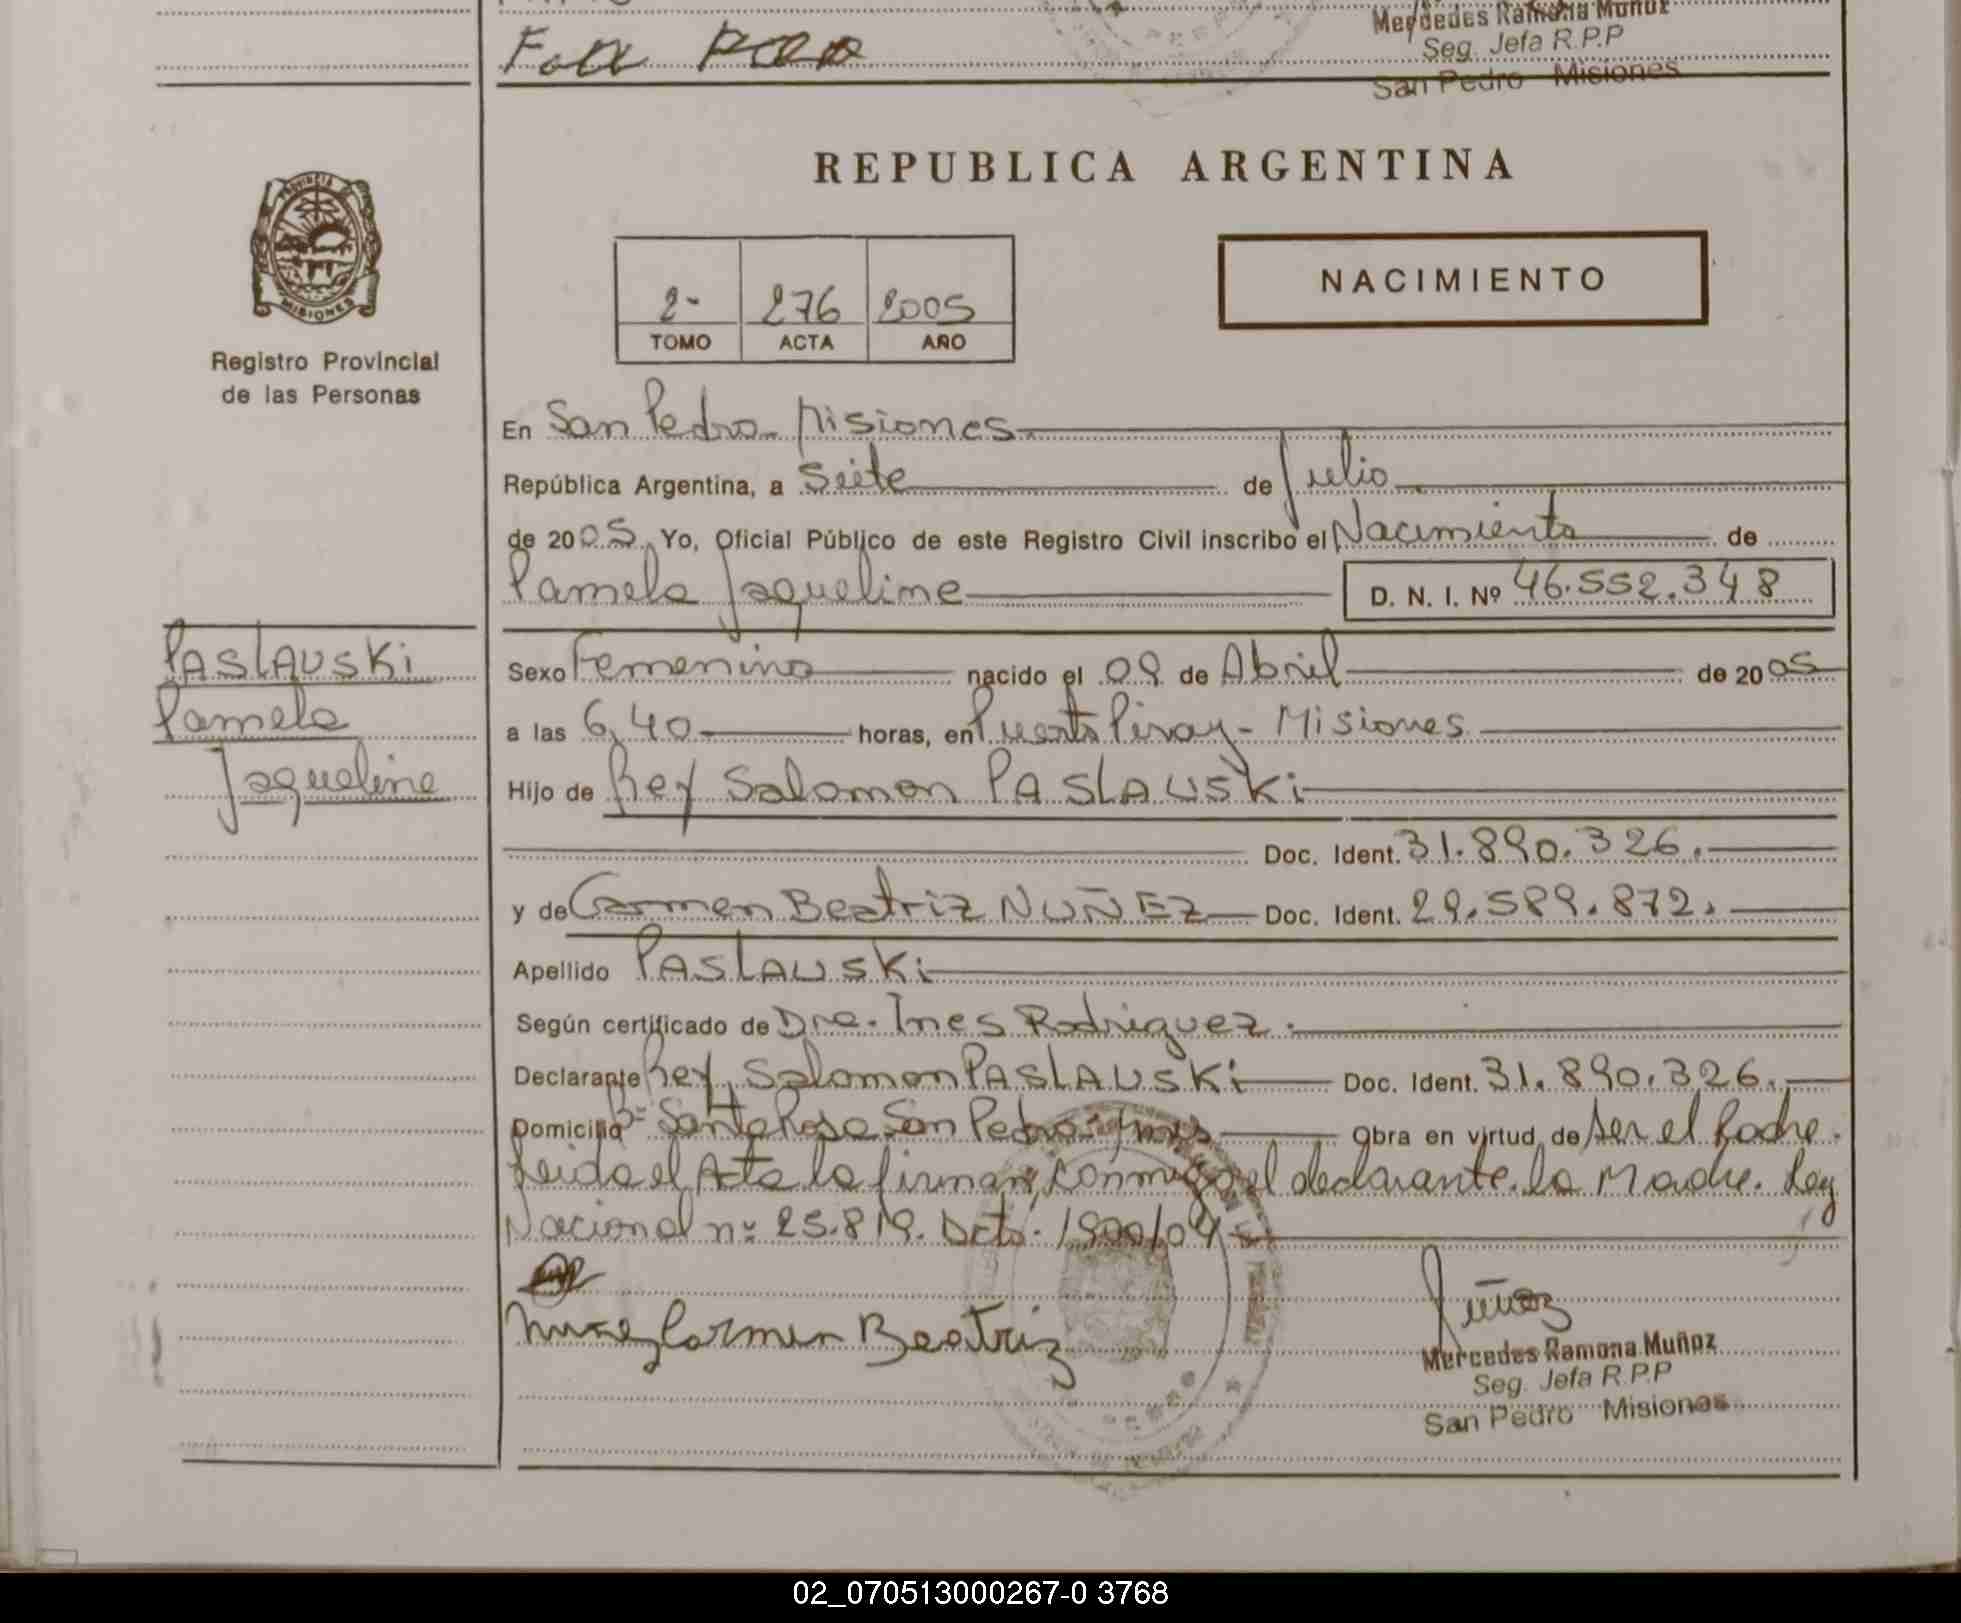 Mercedes Ramona Muñoz
Seg. Jefa R.P.P
San Pedro Misiones
REPUBLICA ARGENTINA
PROVINCIA
MISIONES
Registro Provincial
de las Personas
2- 276 2005
TOMO ACTA AÑO
NACIMIENTO
En San Pedro - Misiones
República Argentina, a Siete de Julio
de 2005 Yo, Oficial Público de este Registro Civil inscribo el Nacimiento de
Pamela Jaqueline D. N. I. Nº 46.552.348
PASLAUSKi
Pamela
Jaqueline
Sexo Femenino nacido el 09 de Abril de 2005
a las 6,40 horas, en Puerto Piray - Misiones
Hijo de Rey Salomon PASLAUSKi
Doc. Ident. 31.890.326.
y de Carmen Beatriz NUÑEZ Doc. Ident. 29.589.872.
Apellido PASLAUSKi
Según certificado de Dra. Ines Rodriguez.
Declarante Rey Salomon PASLAUSKi Doc. Ident. 31.890.326.
Domicilio Bº Santa Rosa San Pedro Obra en virtud de Ser el Padre.
Leida el Acta la firman conmigo el declarante. la Madre. Ley
Nacional nº 25.819. Dcto. 1900/04
Nuñez Carmen Beatriz
Mercedes Ramona Muñoz
Seg. Jefa R.P.P
San Pedro Misiones
02_070513000267-0 3768